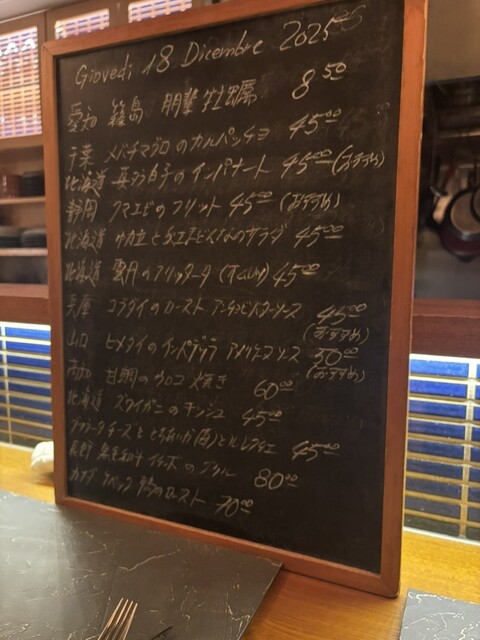 Giovedi 18 Dicembre 2025
愛知 篠島 牡蠣 8 50
千葉 メバチマグロのカルパッチョ 45 00
北海道 真ダラ白子のインパナート 45 00 (おすすめ)
静岡 アマエビのフリット 45 00 (おすすめ)
北海道 帆立と のサラダ 45 00
北海道 雲丹のフリッタータ 45 00
兵庫 コラダイのロースト アンチョビバターソース 45 00
(おすすめ)
山口 ヒメダイのインパデッラ アメリケーヌソース 50 00
(おすすめ)
高知 甘鯛のウロコ焼き 60 00
北海道 ズワイガニのキッシュ 45 00
ブッラータチーズととちあいか(苺) 45 00
長野 イチボのグリル 80 00
カナダ ケベック のロースト 70 00